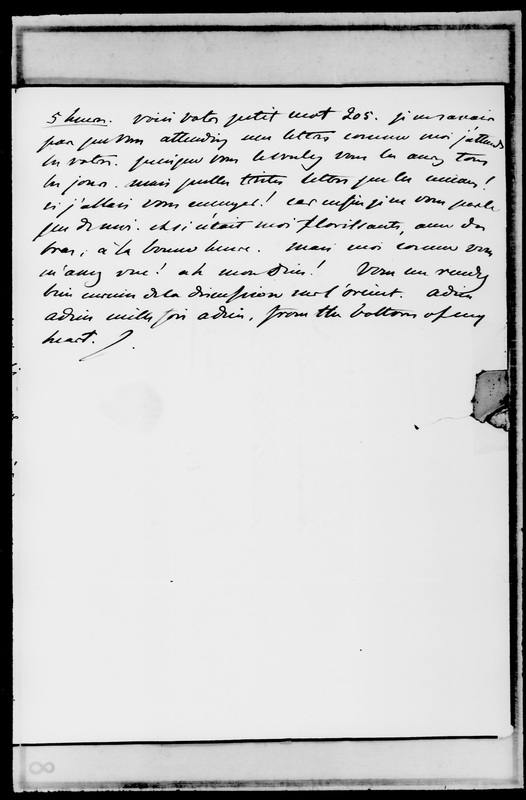 5 heures. voici votre petit mot 205. je ne savais
pas que vous attendiez mes lettres comme moi j'attends
les votres. puisque vous le voulez vous les aurez tous
les jours. mais quelles tristes lettres que les miennes!
si j'allais vous ennuyer! car enfin je ne vous parle
que de moi. et si c'était moi florissante, avec des
bras, à la bonne heure. mais moi comme vous
m'avez vue! ah mon Dieu! Vous me rendez
bien curieuse de la discussion sur l'orient. adieu
adieu mille fois adieu, from the bottom of my
heart.